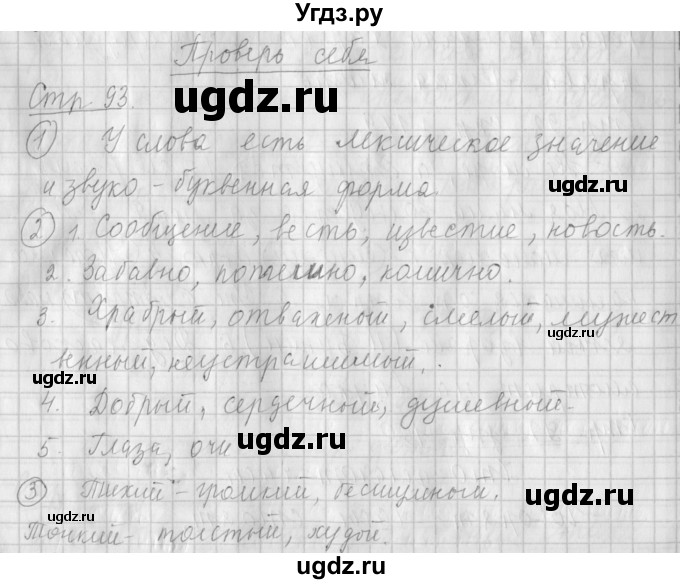 Угдз.ру
Проверь себя
Стр 93.
ugdz.ru
① У слова есть лексическое значение
и звуко-буквенная форма
ugdz.ru
ugdz.ru
② 1. Сообщение, весть, известие, новость.
2. Забавно, потешно, комично.
ugdz.ru
3. Храбрый, отважный, смелый, мужест
венный, неустрашимый.
ugdz.ru
4. Добрый, сердечный, душевный
ugdz.ru
5. Глаза, очи
ugdz.ru
③ Тихий - громкий, бесшумный.
ugdz.ru
Тонкий - толстый, худой.
ugdz.ru